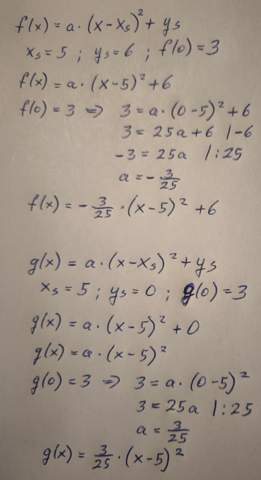 f(x) = a · (x - xₛ)² + yₛ
xₛ = 5 ; yₛ = 6 ; f(0) = 3
f(x) = a · (x - 5)² + 6
f(0) = 3 => 3 = a · (0 - 5)² + 6
3 = 25a + 6 | -6
-3 = 25a | : 25
a = - 3/25
f(x) = - 3/25 · (x - 5)² + 6
g(x) = a · (x - xₛ)² + yₛ
xₛ = 5 ; yₛ = 0 ; g(0) = 3
g(x) = a · (x - 5)² + 0
g(x) = a · (x - 5)²
g(0) = 3 => 3 = a · (0 - 5)²
3 = 25a | : 25
a = 3/25
g(x) = 3/25 · (x - 5)²